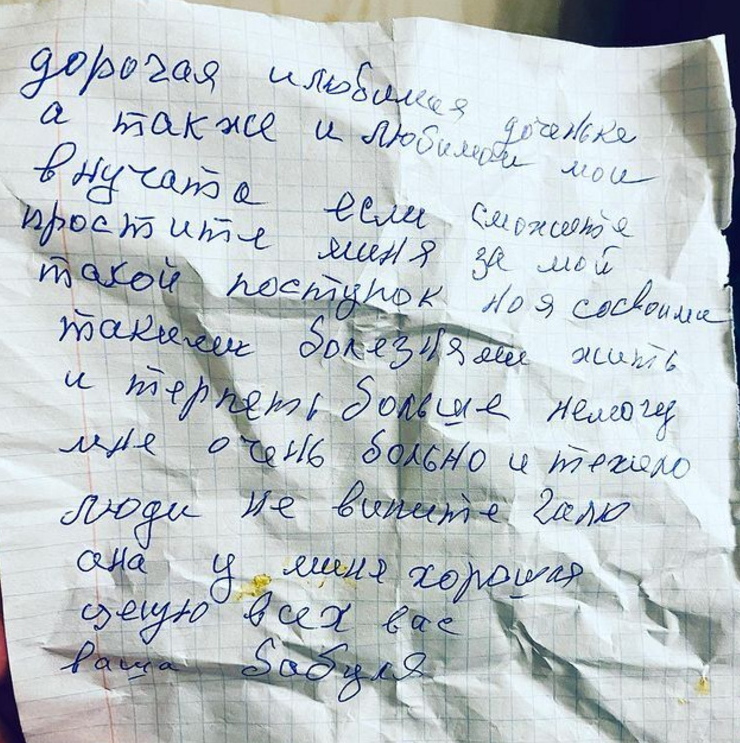 дорогая илюбимая доченька
а также и любимои мои
внучата если сможите
простите миня за мой
такой поступок но я сосвоими
такими болезнями жить
и терпеть больше немогу
мне очень больно и тежело
люди не вините Галю
она у миня хорошая
целую всех вас
ваша бабуля